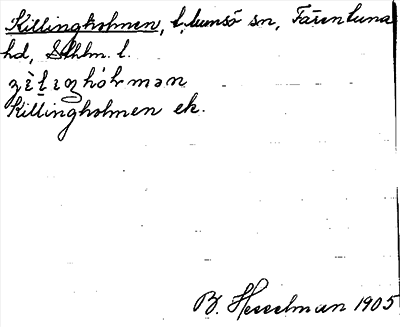 Killingholmen, Lumsö sn, Färentuna
hd, Sthlm. l.
Killingholmen ek.
B. Hesselman 1905